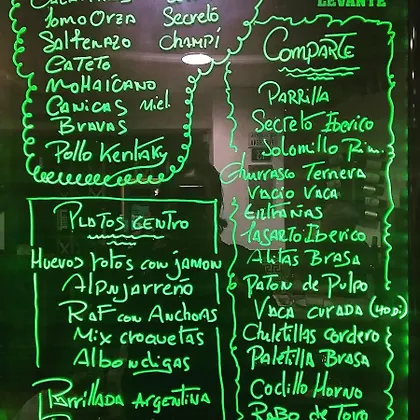 LEVANTE
Tomo Orza Secreto
Salteñazo Champi
Cateto
Mohaicano
Canicas Miel
Bravas
Pollo Kentaky
Platos Centro
Huevos rotos con jamon
Alpujarreño
Raf con Anchoas
Mix croquetas
Albondigas
Parrillada Argentina
Comparte
Parrilla
Secreto Iberico
Solomillo
Churrasco Ternera
Vacio Vaca
Entrañas
Lagarto Iberico
Alitas Brasa
Paton de Pulpo
Vaca curada (40Di)
Chuletillas cordero
Paletilla Brasa
Codillo Horno
Rabo de Toro